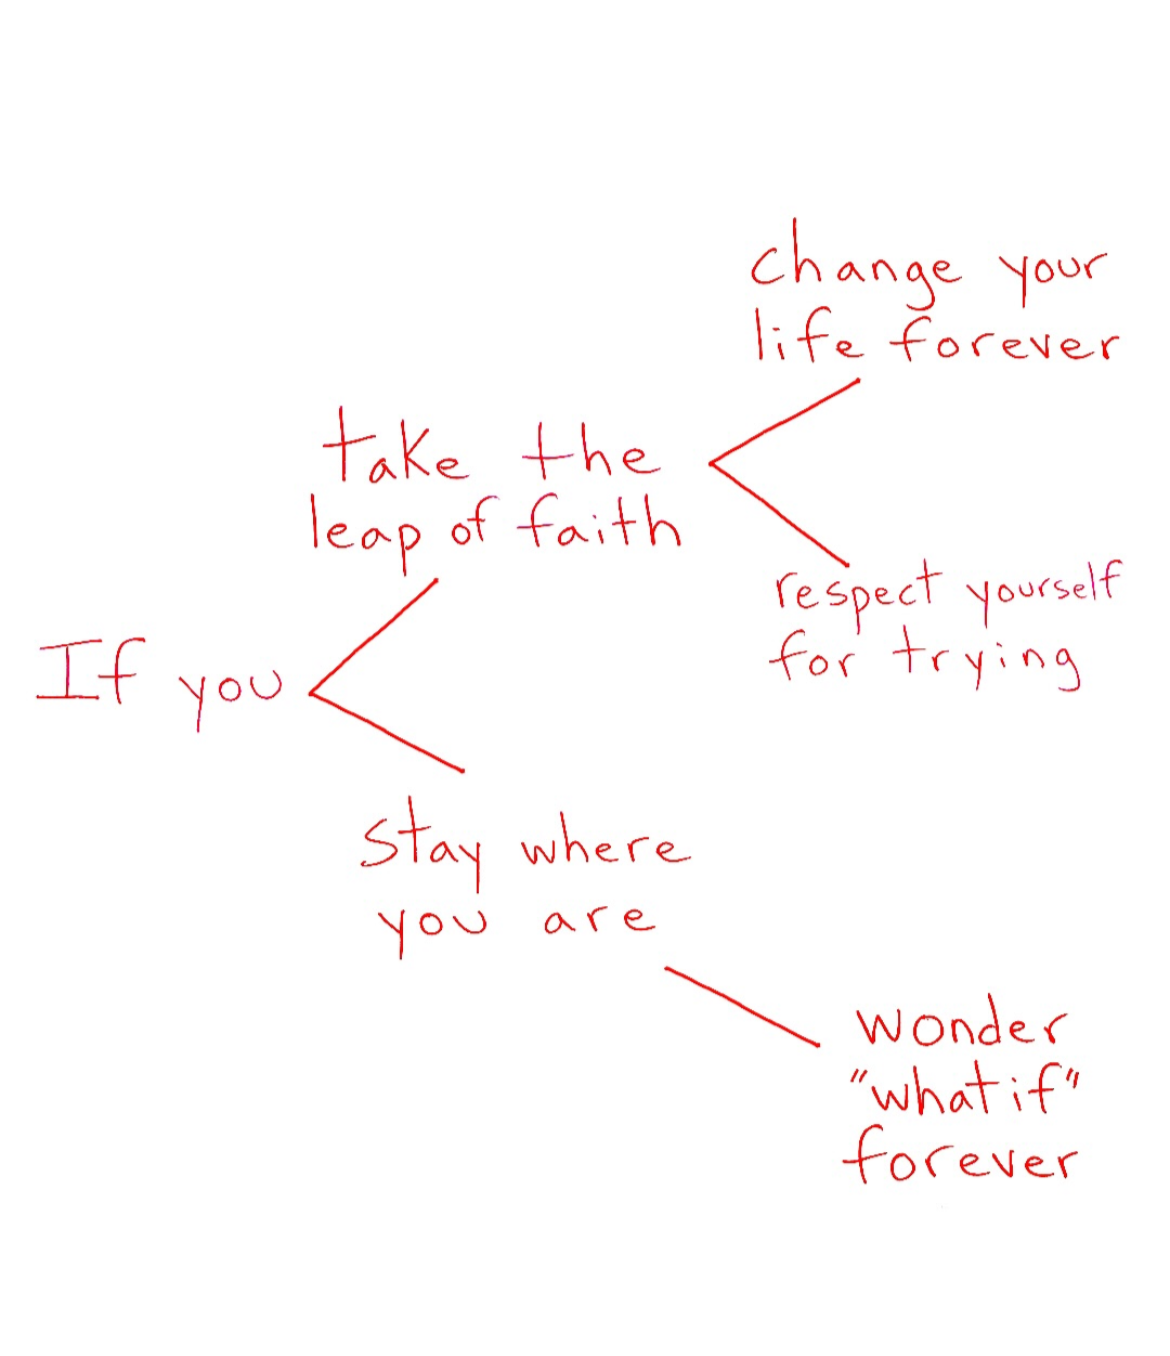 change your
life forever
take the
leap of faith
respect yourself
for trying
If you
stay where
you are
wonder
"what if"
forever